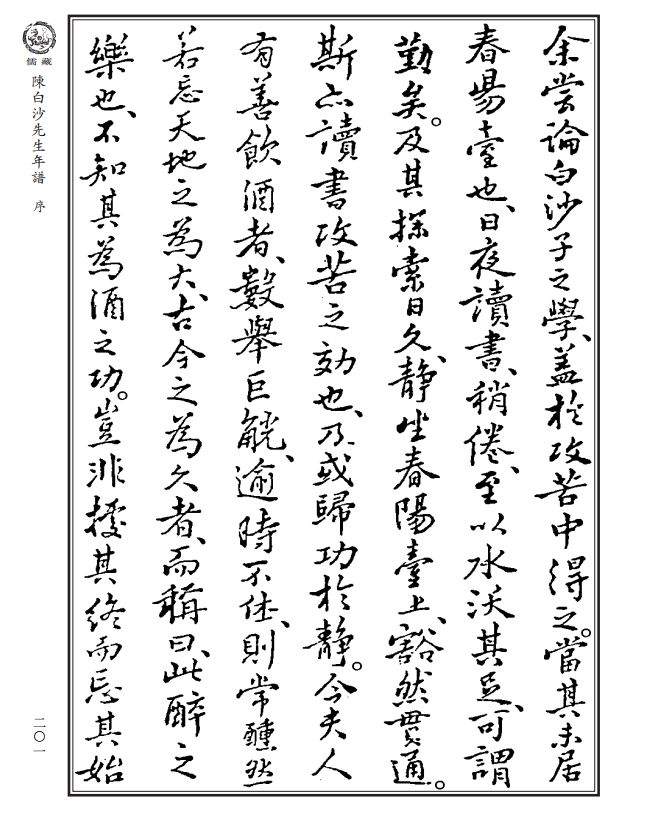 余嘗論白沙子之學、蓋於攻苦中得之。當其未居
春陽臺也、日夜讀書、稍倦、至以水沃其足、可謂
勤矣。及其探索日久、靜坐春陽臺上、豁然貫通。
斯亦讀書攻苦之効也、乃或歸功於靜。今夫人
有善飲酒者、數舉巨觥、逾時不住、則常醺然
若忘天地之為大、古今之為久者、而稱曰、此醉之
樂也、不知其為酒之功。豈非據其終而忘其始
儒藏
陳白沙先生年譜 序
二〇一